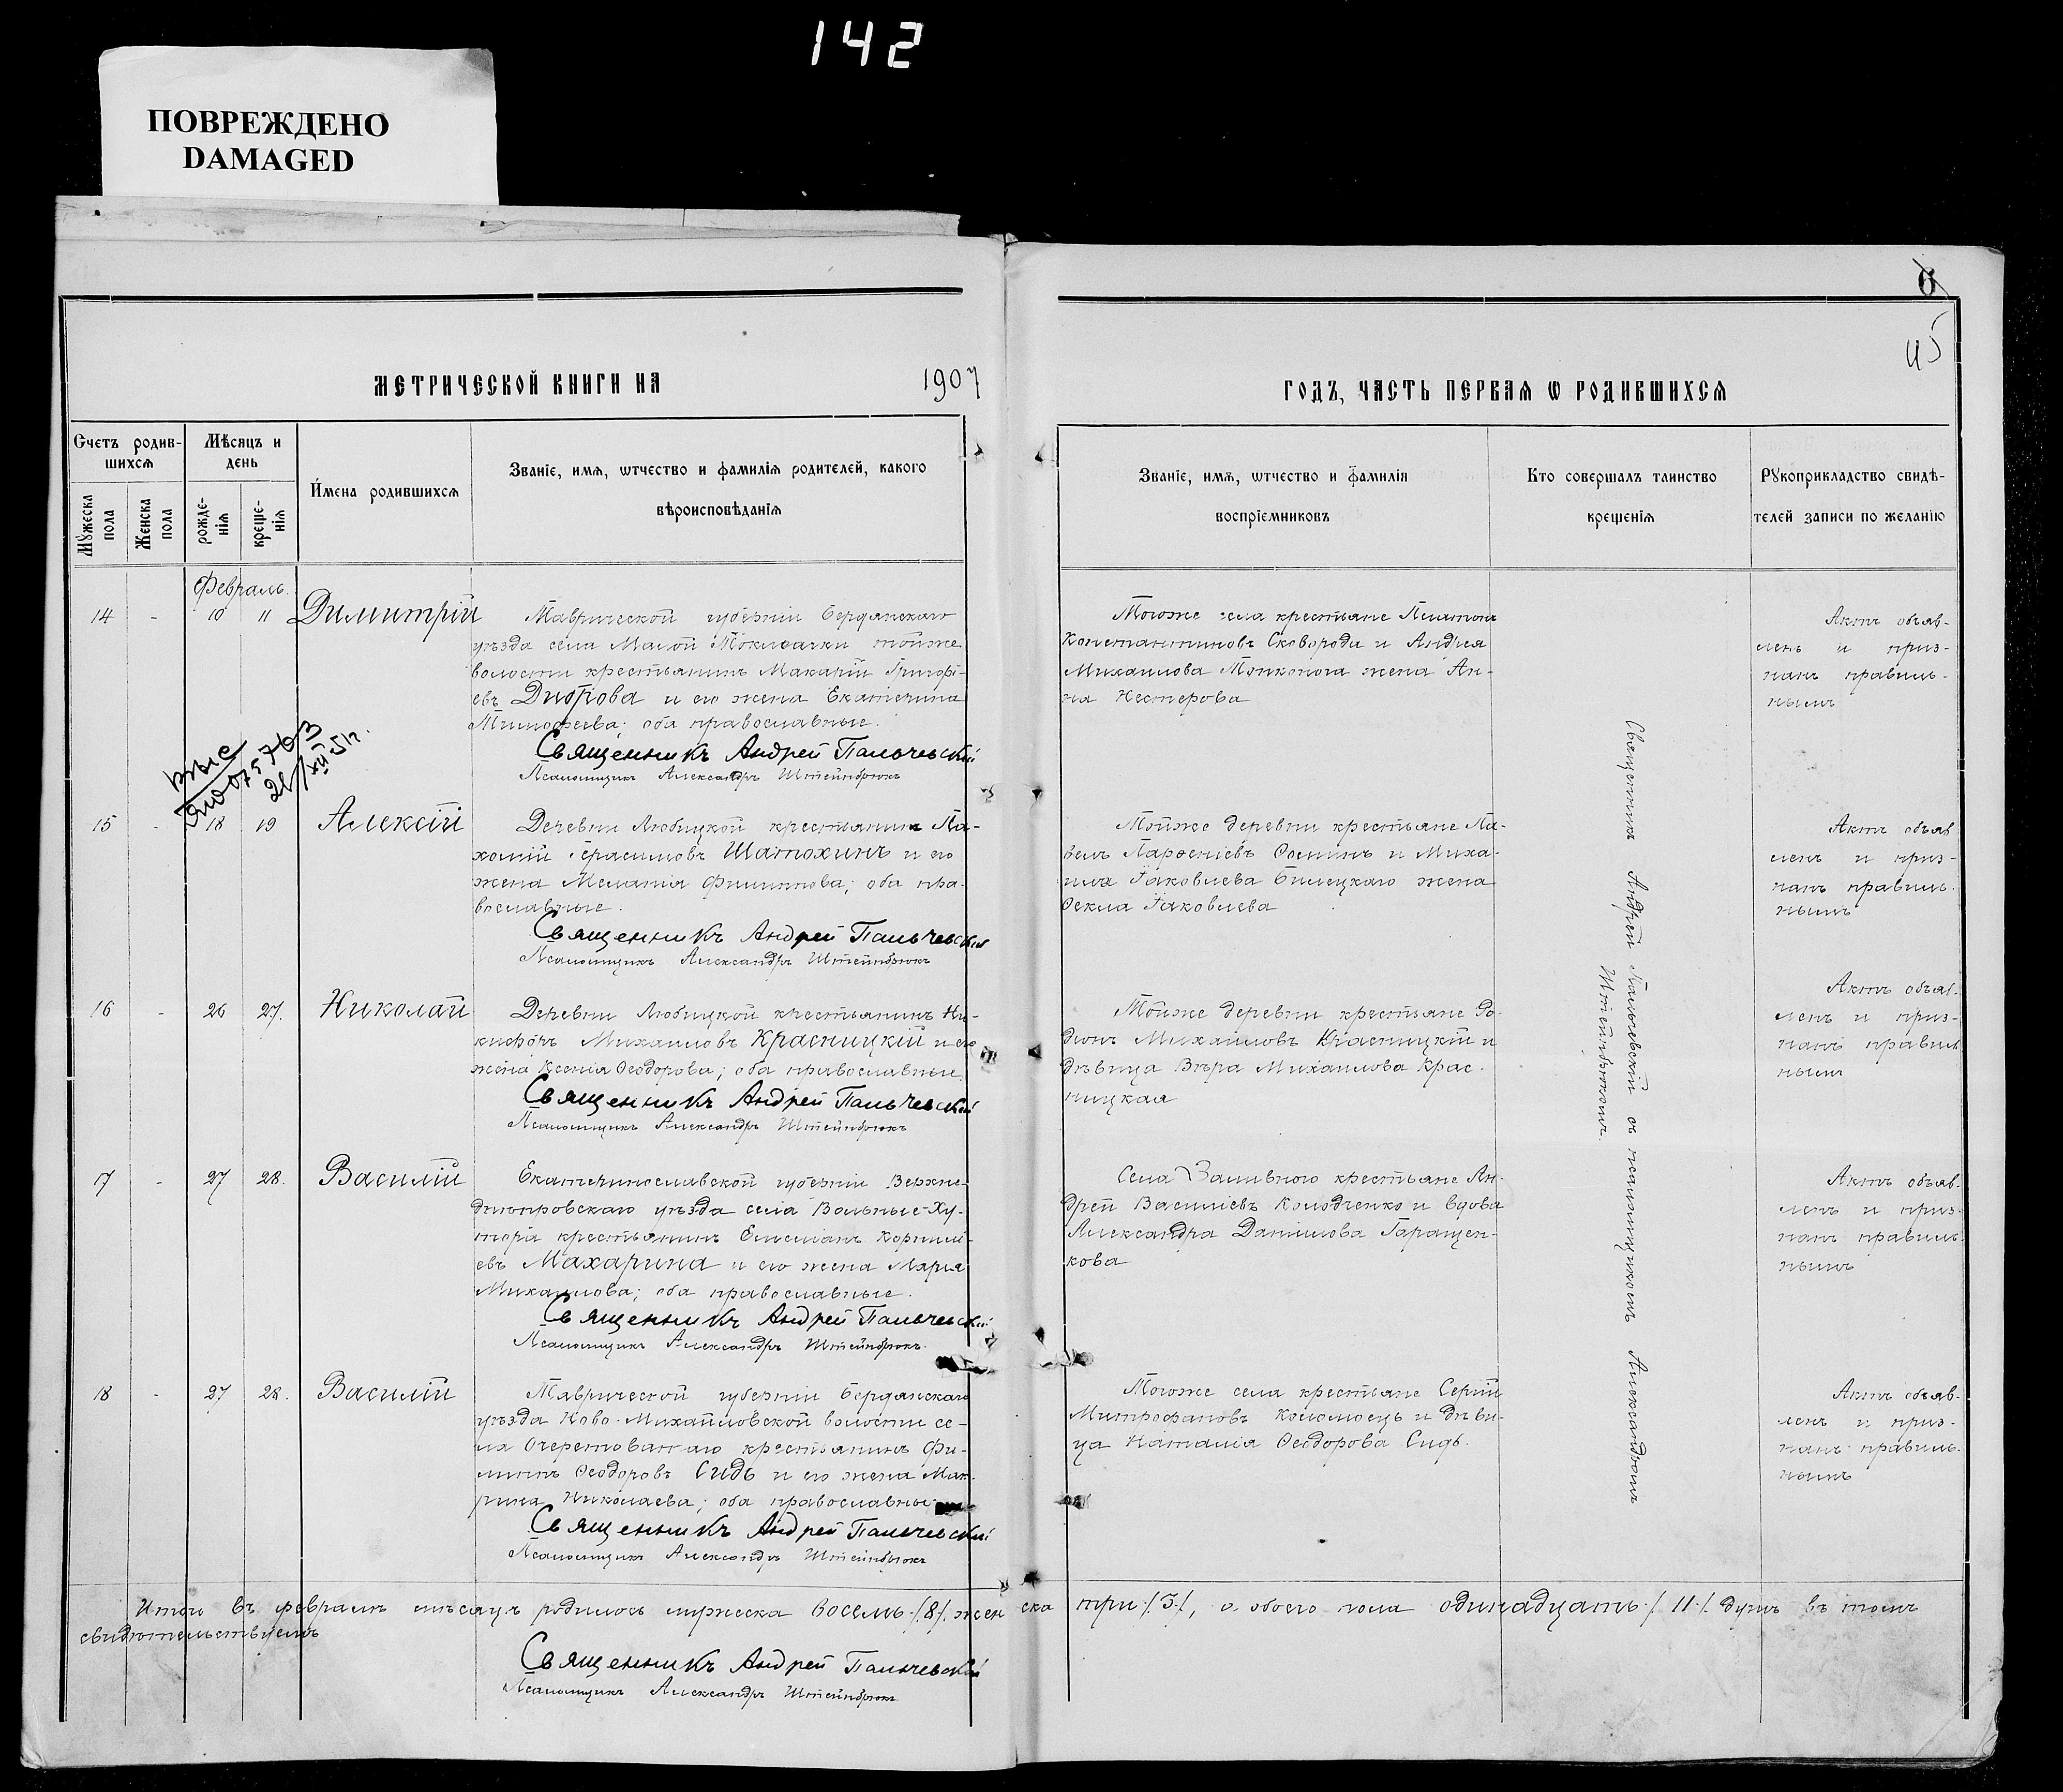 142
ПОВРЕЖДЕНО
DAMAGED
6
45
МЕТРИЧЕСКОЙ КНИГИ НА 1907
ГОДЪ, ЧАСТЬ ПЕРВАЯ Ѡ РОДИВШИХСЯ
Счетъ родив-
шихся
Мѣсяцъ и
день
Мужеска
пола
Женска
пола
рожде-
нія
креще-
нія
Имена родившихся
Званіе, имя, ѡтчество и фамилія родителей, какого
вѣроисповѣданія
Званіе, имя, ѡтчество и фамилія
воспріемниковъ
Кто совершалъ таинство
крещенія
Рукоприкладство свидѣ-
телей записи по желанію
Февраль
14 - 10 11 Димитрій
Таврической губерніи Бердянскаго
уѣзда села Малой Токмачки тойже
волости крестьянинъ Макарій Григорі-
евъ и его жена Екатерина
Тимофеева; оба православные.
Священникъ Андрей Пальчевскій
Псаломщикъ Александръ Штейнбрюкъ
Тогоже села крестьяне Платонъ
Константиновъ Сковорода и Андрея
Михаилова жена Ан-
на Нестерова
Актъ объяв-
ленъ и приз-
нанъ правиль-
нымъ
15 - 18 19 Алексій
Деревни Любицкой крестьянинъ Па-
хомій Герасимовъ Шатохинъ и его
жена Меланія Филиппова; оба пра-
вославные.
Священникъ Андрей Пальчевскій
Псаломщикъ Александръ Штейнбрюкъ
Тойже деревни крестьяне Па-
велъ Парѳеніевъ Ѳоминъ и Миха-
ила Іаковлева Билецкаго жена
Ѳекла Іаковлева
Актъ объяв
ленъ и приз-
нанъ правиль-
нымъ
16 - 26 27. Николай
Деревни Любицкой крестьянинъ Ни-
кифоръ Михаиловъ Красницкій и его
жена Ксенія Ѳеодорова; оба православные.
Священникъ Андрей Пальчевскій
Псаломщикъ Александръ Штейнбрюкъ
Тойже деревни крестьяне Ро-
діонъ Михаиловъ Красницкій и
дѣвица Вѣра Михаилова Крас-
ницкая
Актъ объяв-
ленъ и приз-
нанъ правиль
нымъ
17 - 27 28. Василій
Екатеринославской губерніи Верхне-
днѣпровскаго уѣзда села Вольные-Ху-
тора крестьянинъ Емеліанъ Корнилі-
евъ Махарина и его жена Марія
Михаилова; оба православные.
Священникъ Андрей Пальчевскій
Псаломщикъ Александръ Штейнбрюкъ
Села Заливного крестьяне Ан-
дрей Василіевъ Колодченко и вдова
Александра Даніилова Гаращен-
кова
Актъ объяв-
ленъ и приз-
нанъ правиль
нымъ
18 - 27 28. Василій
Таврической губерніи Бердянскаго
уѣзда Ново-Михайловской волости се-
ла Очеретоватаго крестьянинъ Фи-
липпъ Ѳеодоровъ Сидь и его жена Мак-
рина Николаева; оба православные
Священникъ Андрей Пальчевскій
Псаломщикъ Александръ Штейнбрюкъ
Тогоже села крестьяне Сергій
Митрофановъ Коломоецъ и дѣви-
ца Наталія Ѳеодорова Сидь.
Актъ объяв-
ленъ и приз-
нанъ правиль-
нымъ
Священникъ Андрей Пальчевскій съ псаломщикомъ Александромъ
Штейнбрюкомъ.
Итого въ февралѣ мѣсяцѣ родилось мужеска восемь /8/ женска три /3/, а обоего пола одинадцать /11/ душъ въ томъ
свидѣтельствуемъ
Священникъ Андрей Пальчевскій
Псаломщикъ Александръ Штейнбрюкъ